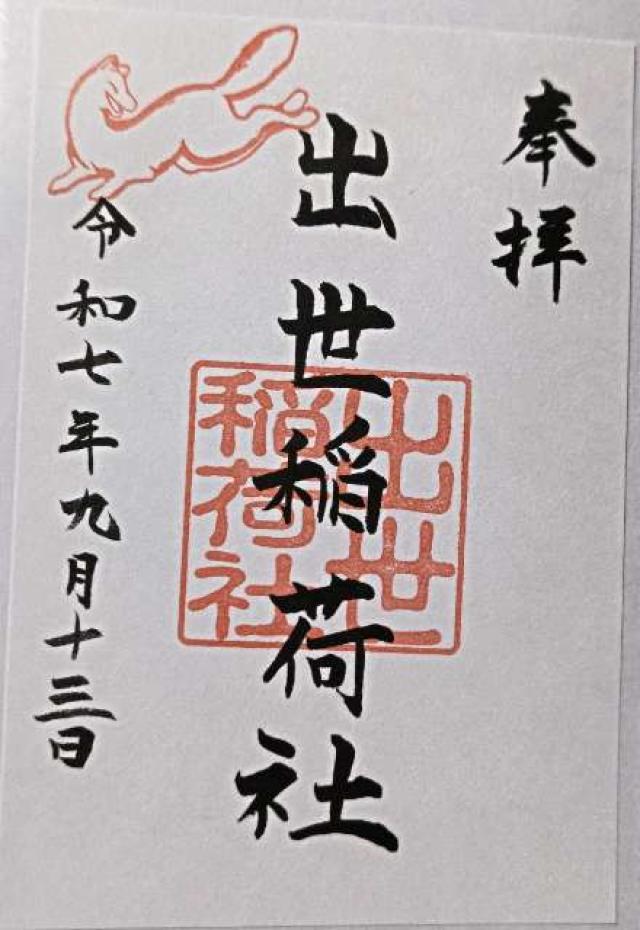 奉拝
出世稲荷社
出世
稲荷社
令和七年九月十三日